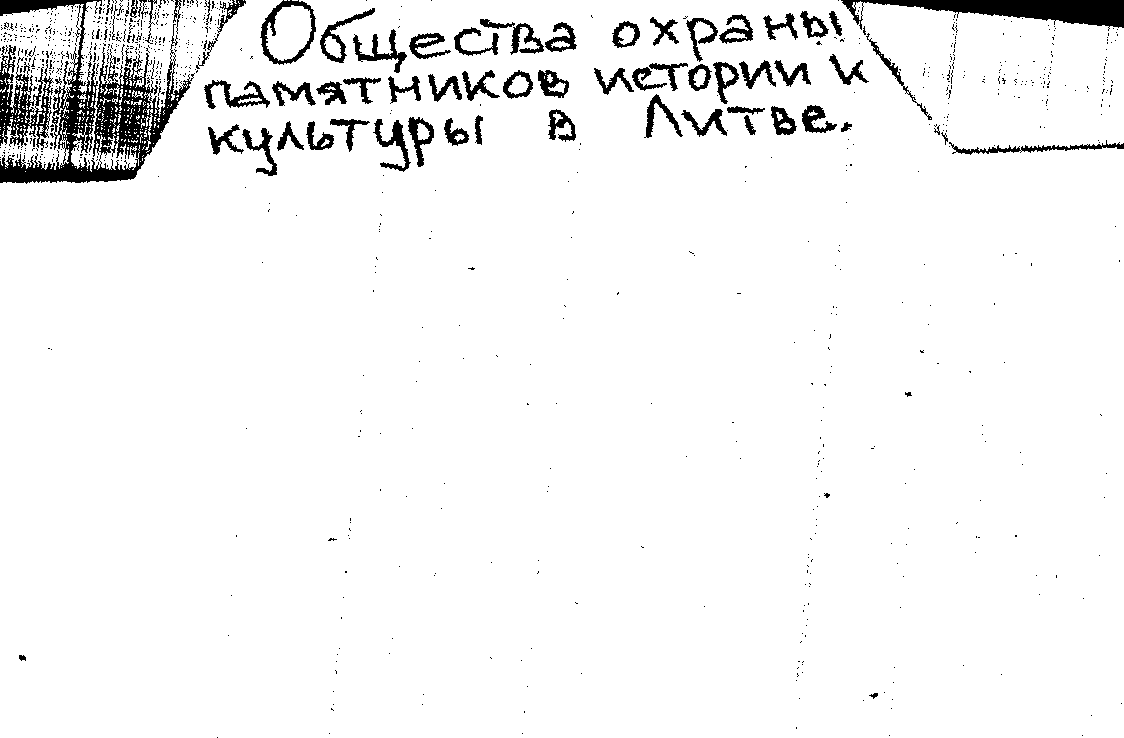 Общества охраны
памятников истории к
культуры в Литве.